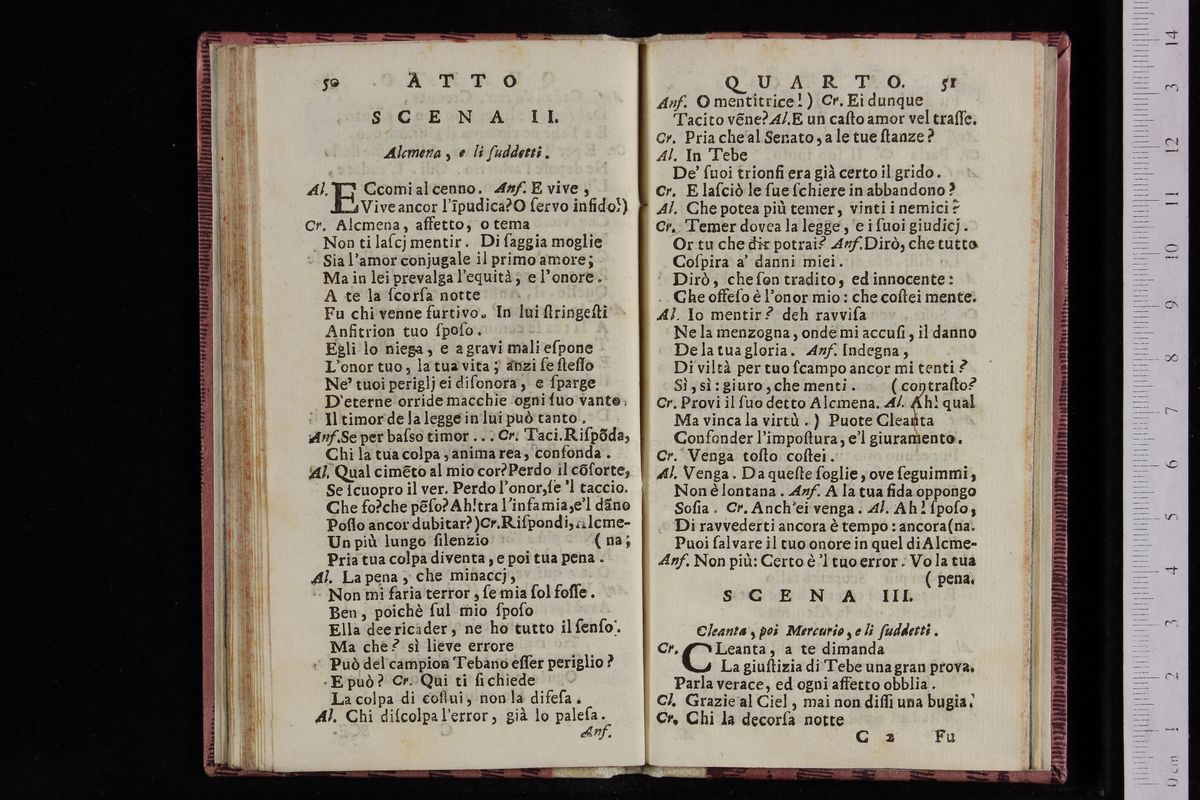 50 ATTO
SCENA II.
Alcmena, e li ſuddetti.
Al. ECcomi al cenno. Anf. E vive,
Vive ancor l'ĩpudica? O ſervo infido!)
Cr. Alcmena, affetto, o tema
Non ti laſcj mentir. Di ſaggia moglie
Sia l'amor conjugale il primo amore;
Ma in lei prevalga l'equità, e l'onore.
A te la ſcorſa notte
Fu chi venne furtivo. In lui ſtringeſti
Anfitrion tuo ſpoſo.
Egli lo niega, e a gravi mali eſpone
L'onor tuo, la tua vita; anzi ſe ſteſſo
Ne' tuoi periglj ei diſonora, e ſparge
D'eterne orride macchie ogni ſuo vanto.
Il timor de la legge in lui può tanto.
Anf. Se per baſso timor... Cr. Taci. Riſpõda,
Chi la tua colpa, anima rea, confonda.
Al. Qual cimẽto al mio cor? Perdo il cõſorte,
Se ſcuopro il ver. Perdo l'onor, ſe 'l taccio.
Che fo? che pẽſo? Ah! tra l'infamia, e'l dãno
Poſſo ancor dubitar?) Cr. Riſpondi, Alcme-
Un più lungo ſilenzio (na;
Pria tua colpa diventa, e poi tua pena.
Al. La pena, che minaccj,
Non mi faria terror, ſe mia ſol foſſe.
Ben, poichè ſul mio ſpoſo
Ella dee ricader, ne ho tutto il ſenſo.
Ma che? sì lieve errore
Può del campion Tebano eſſer periglio?
E può? Cr. Qui ti ſi chiede
La colpa di coſtui, non la difeſa.
Al. Chi diſcolpa l'error, già lo paleſa.
Anf.
QUARTO. 51
Anf. O mentitrice!) Cr. Ei dunque
Tacito vẽne? Al. E un caſto amor vel traſſe.
Cr. Pria che al Senato, a le tue ſtanze?
Al. In Tebe
De' ſuoi trionfi era già certo il grido.
Cr. E laſciò le ſue ſchiere in abbandono?
Al. Che potea più temer, vinti i nemici?
Cr. Temer dovea la legge, e i ſuoi giudicj.
Or tu che dir potrai? Anf. Dirò, che tutto
Coſpira a' danni miei.
Dirò, che ſon tradito, ed innocente:
Che offeſo è l'onor mio: che coſtei mente.
Al. Io mentir? deh ravviſa
Ne la menzogna, onde mi accuſi, il danno
De la tua gloria. Anf. Indegna,
Di viltà per tuo ſcampo ancor mi tenti?
Sì, sì: giuro, che menti. (contraſto?
Cr. Provi il ſuo detto Alcmena. Al. Ah! qual
Ma vinca la virtù.) Puote Cleanta
Confonder l'impoſtura, e'l giuramento.
Cr. Venga toſto coſtei.
Al. Venga. Da queſte ſoglie, ove ſeguimmi,
Non è lontana. Anf. A la tua fida oppongo
Soſia. Cr. Anch'ei venga. Al. Ah! ſpoſo,
Di ravvederti ancora è tempo: ancora (na.
Puoi ſalvare il tuo onore in quel di Alcme-
Anf. Non più: Certo è 'l tuo error. Vo la tua
(pena.
SCENA III.
Cleanta, poi Mercurio, e li ſuddetti.
Cr. CLeanta, a te dimanda
La giuſtizia di Tebe una gran prova.
Parla verace, ed ogni affetto obblia.
Cl. Grazie al Ciel, mai non diſſi una bugia.
Cr. Chi la decorſa notte
C 2 Fu
0 cm 1 2 3 4 5 6 7 8 9 10 11 12 3 14